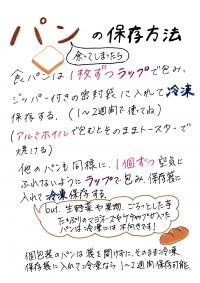 パンの保存方法
余ってしまったら
食パンは1枚ずつラップで包み、
ジッパー付きの密封袋に入れて冷凍
保存する。(1〜2週間で使ってね)
(アルミホイルで包むとそのままトースターで
焼ける)
他のパンも同様に、1個ずつ空気に
ふれないようにラップで包み、保存袋に
入れて冷凍保存する。
but、生野菜や果物、ごろっとした具
たっぷりのマヨネーズやケチャップが入った
パンは冷凍には不向きです!
個包装のパンは袋を開けずに、そのまま冷凍
保存袋に入れて冷凍なら1〜2週間保存可能。